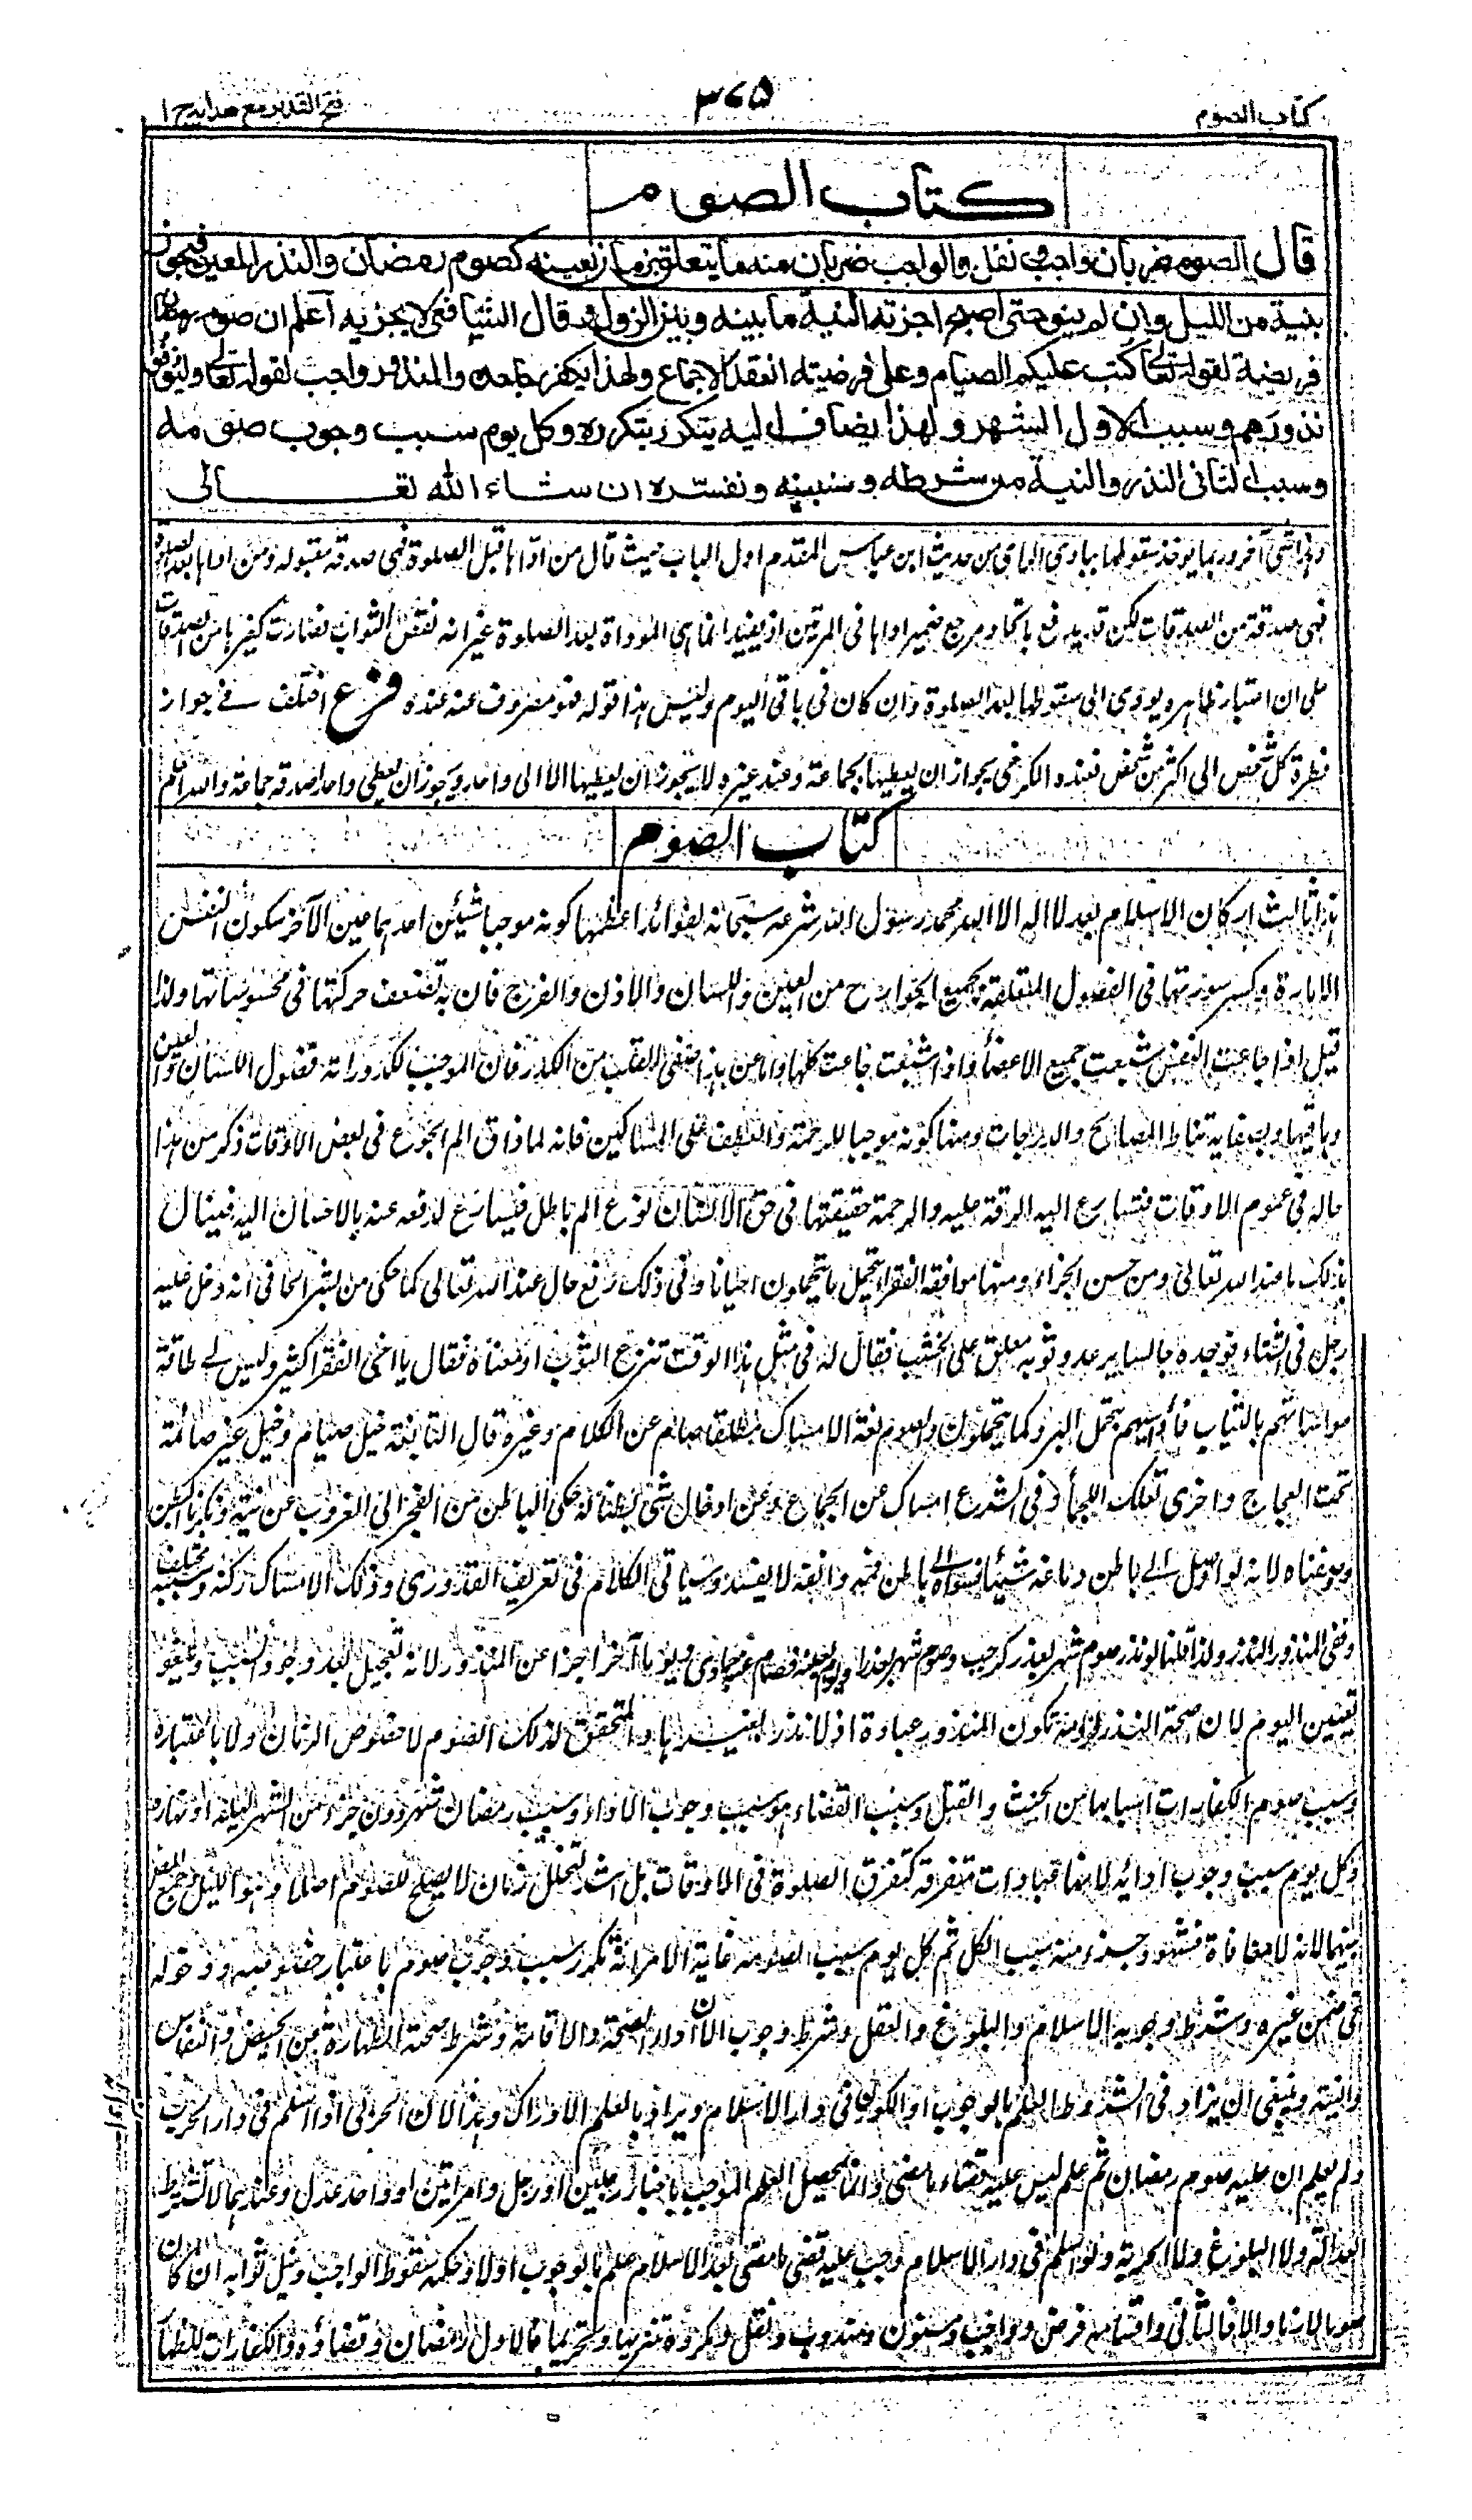 كتاب الصوم
٣٧٥
فتح القدير مع هدايه ج ١
كتاب الصوم
قال الصوم ضربان واجب ونفل والواجب ضربان منه ما يتعلق بزمان بعينه كصوم رمضان والنذر المعين فيجوز
بنية من الليل وان لم ينو حتى اصبح اجزته النية ما بينه وبين الزوال وقال الشافعى لا يجزيه اعلم ان صوم رمضان
فريضة لقوله تعالى كتب عليكم الصيام وعلى فرضيته انعقد الاجماع ولهذا يكفر جاحده والمنذور واجب لقوله تعالى وليوفوا
نذورهم وسبب الاول الشهر ولهذا يضاف اليه يتكرر بتكرره وكل يوم سبب وجوب صومه
وسبب الثانى النذر والنية من شرطه وسنبينه ونفسره ان شاء الله تعالى
المقدم اول الباب حيث قال من اداها قبل الصلوة فهى صدقة مقبولة ومن اداها بعد الصلوة
فهى صدقة من الصدقات لكن قد يدفع باتحاد مرجع ضمير اداها فى المرتين اذ يفيد انها هى المؤداة بعد الصلوة غير انه نقص الثواب فصارت كغيرها من الصدقات
على ان اعتبار ظاهره يؤدى الى سقوطها بعد الصلوة وان كان فى باقى اليوم وليس هذا قوله فهو مصروف عنه عنده فرع اختلف فى جواز
فطرة كل شخص الى اكثر من شخص فعند الكرخى يجوز ان يعطيها لجماعة وعند غيره لا يجوز ان يعطيها الا الى واحد ويجوز ان يعطى واحدا صدقة جماعة والله اعلم
كتاب الصوم
هذا ثالث اركان الاسلام بعد لا اله الا الله محمد رسول الله شرعه سبحانه لفوائد اعظمها كونه موجبا شيئين احدهما عين الآخر سكون النفس
الامارة وكسر سورتها فى الفضول المتعلقة بجميع الجوارح من العين واللسان والاذن والفرج فان به تضعف حركتها فى محسوساتها ولذا
قيل اذا جاعت النفس شبعت جميع الاعضاء واذا شبعت جاعت كلها وما عن هذا صفى القلب من الكدر فان الموجب لكدوراته فضول اللسان والعين
وباقيها وبصفائه تناط المصالح والدرجات ومنها كونه موجبا للرحمة والعطف على المساكين فانه لما ذاق الم الجوع فى بعض الاوقات ذكر من هذا
حاله فى عموم الاوقات فتسارع اليه الرقة عليه والرحمة حقيقتها فى حق الانسان نوع الم باطن فيسارع لدفعه عنه بالاحسان اليه فينال
بذلك ما عند الله تعالى ومن حسن الجزاء ومنها موافقة الفقراء بتحمل ما يتحملون احيانا وفى ذلك رفع حال عند الله تعالى كما حكى عن بشر الحافى انه دخل عليه
رجل فى الشتاء فوجده جالسا يرعد وثوبه معلق على الخشب فقال له فى مثل هذا الوقت تنزع الثوب او معناه فقال يا اخى الفقراء كثير وليس لى طاقة
مواساتهم بالثياب فأواسيهم بتحمل البرد كما يتحملون والصوم لغة الامساك مطلقا صام عن الكلام وغيره قال النابغة خيل صيام وخيل غير صائمة
تحت العجاج واخرى تعلك اللجما وفى الشرع امساك عن الجماع وعن ادخال شئ بطنا له حكم الباطن من الفجر الى الغروب عن نية
لانه لو اوصل الى باطن دماغه شيئا فسد والى باطن فمه وانفه لا يفسد وسياتى الكلام فى تعريف القدورى وذلك الامساك ركنه وسببه مختلف
وفى المنذور النذر ولذا قلنا لو نذر صوم شهر بعينه كرجب او يوم بعينه فصام عنه جمادى ويوما آخر اجزأ عن المنذور لانه تعجيل بعد وجود السبب ويلغو
تعيين اليوم لان صحة النذر ولزومه تكون المنذور عبادة اذ لا نذر بغيرها والمتحقق لذلك الصوم لا خصوص الزمان ولا باعتباره
وسبب صوم الكفارات اسبابها من الحنث والقتل وسبب القضاء هو سبب وجوب الاداء وسبب رمضان شهود جزء من الشهر ليله او نهاره
وكل يوم سبب وجوب ادائه لانها عبادات متفرقة كتفرق الصلوة فى الاوقات بل اشد لتخلل زمان لا يصلح للصوم اصلا وهو الليل وجمع المصنف
بينهما لانه لا منافاة فشهود جزء منه سبب الكل ثم كل يوم سبب لصومه غاية الامر انه تكرر سبب وجوب صوم باعتبار خصوصه ودخوله
فى ضمن غيره وشرط وجوبه الاسلام والبلوغ والعقل وشرط وجوب الاداء الصحة والاقامة وشرط صحته الطهارة من الحيض والنفاس
والنية وينبغى ان يزاد فى الشروط العلم بالوجوب او الكون فى دار الاسلام ويراد بالعلم الادراك وهذا لان الحربى اذا اسلم فى دار الحرب
ولم يعلم ان عليه صوم رمضان ثم علم ليس عليه قضاء ما مضى وانما يحصل العلم الموجب باخبار رجلين او رجل وامرأتين او واحد عدل وعندهما لا تشترط
العدالة ولا البلوغ ولا الحرية ولو اسلم فى دار الاسلام وجب عليه قضاء ما مضى بعد الاسلام علم بالوجوب اولا وحكمه سقوط الواجب ونيل ثوابه ان كان
صوما لازما والا فالثانى واقسامه فرض وواجب ومسنون ومندوب ونفل ومكروه تنزيها وتحريما فالاول رمضان وقضاؤه والكفارات للظهار